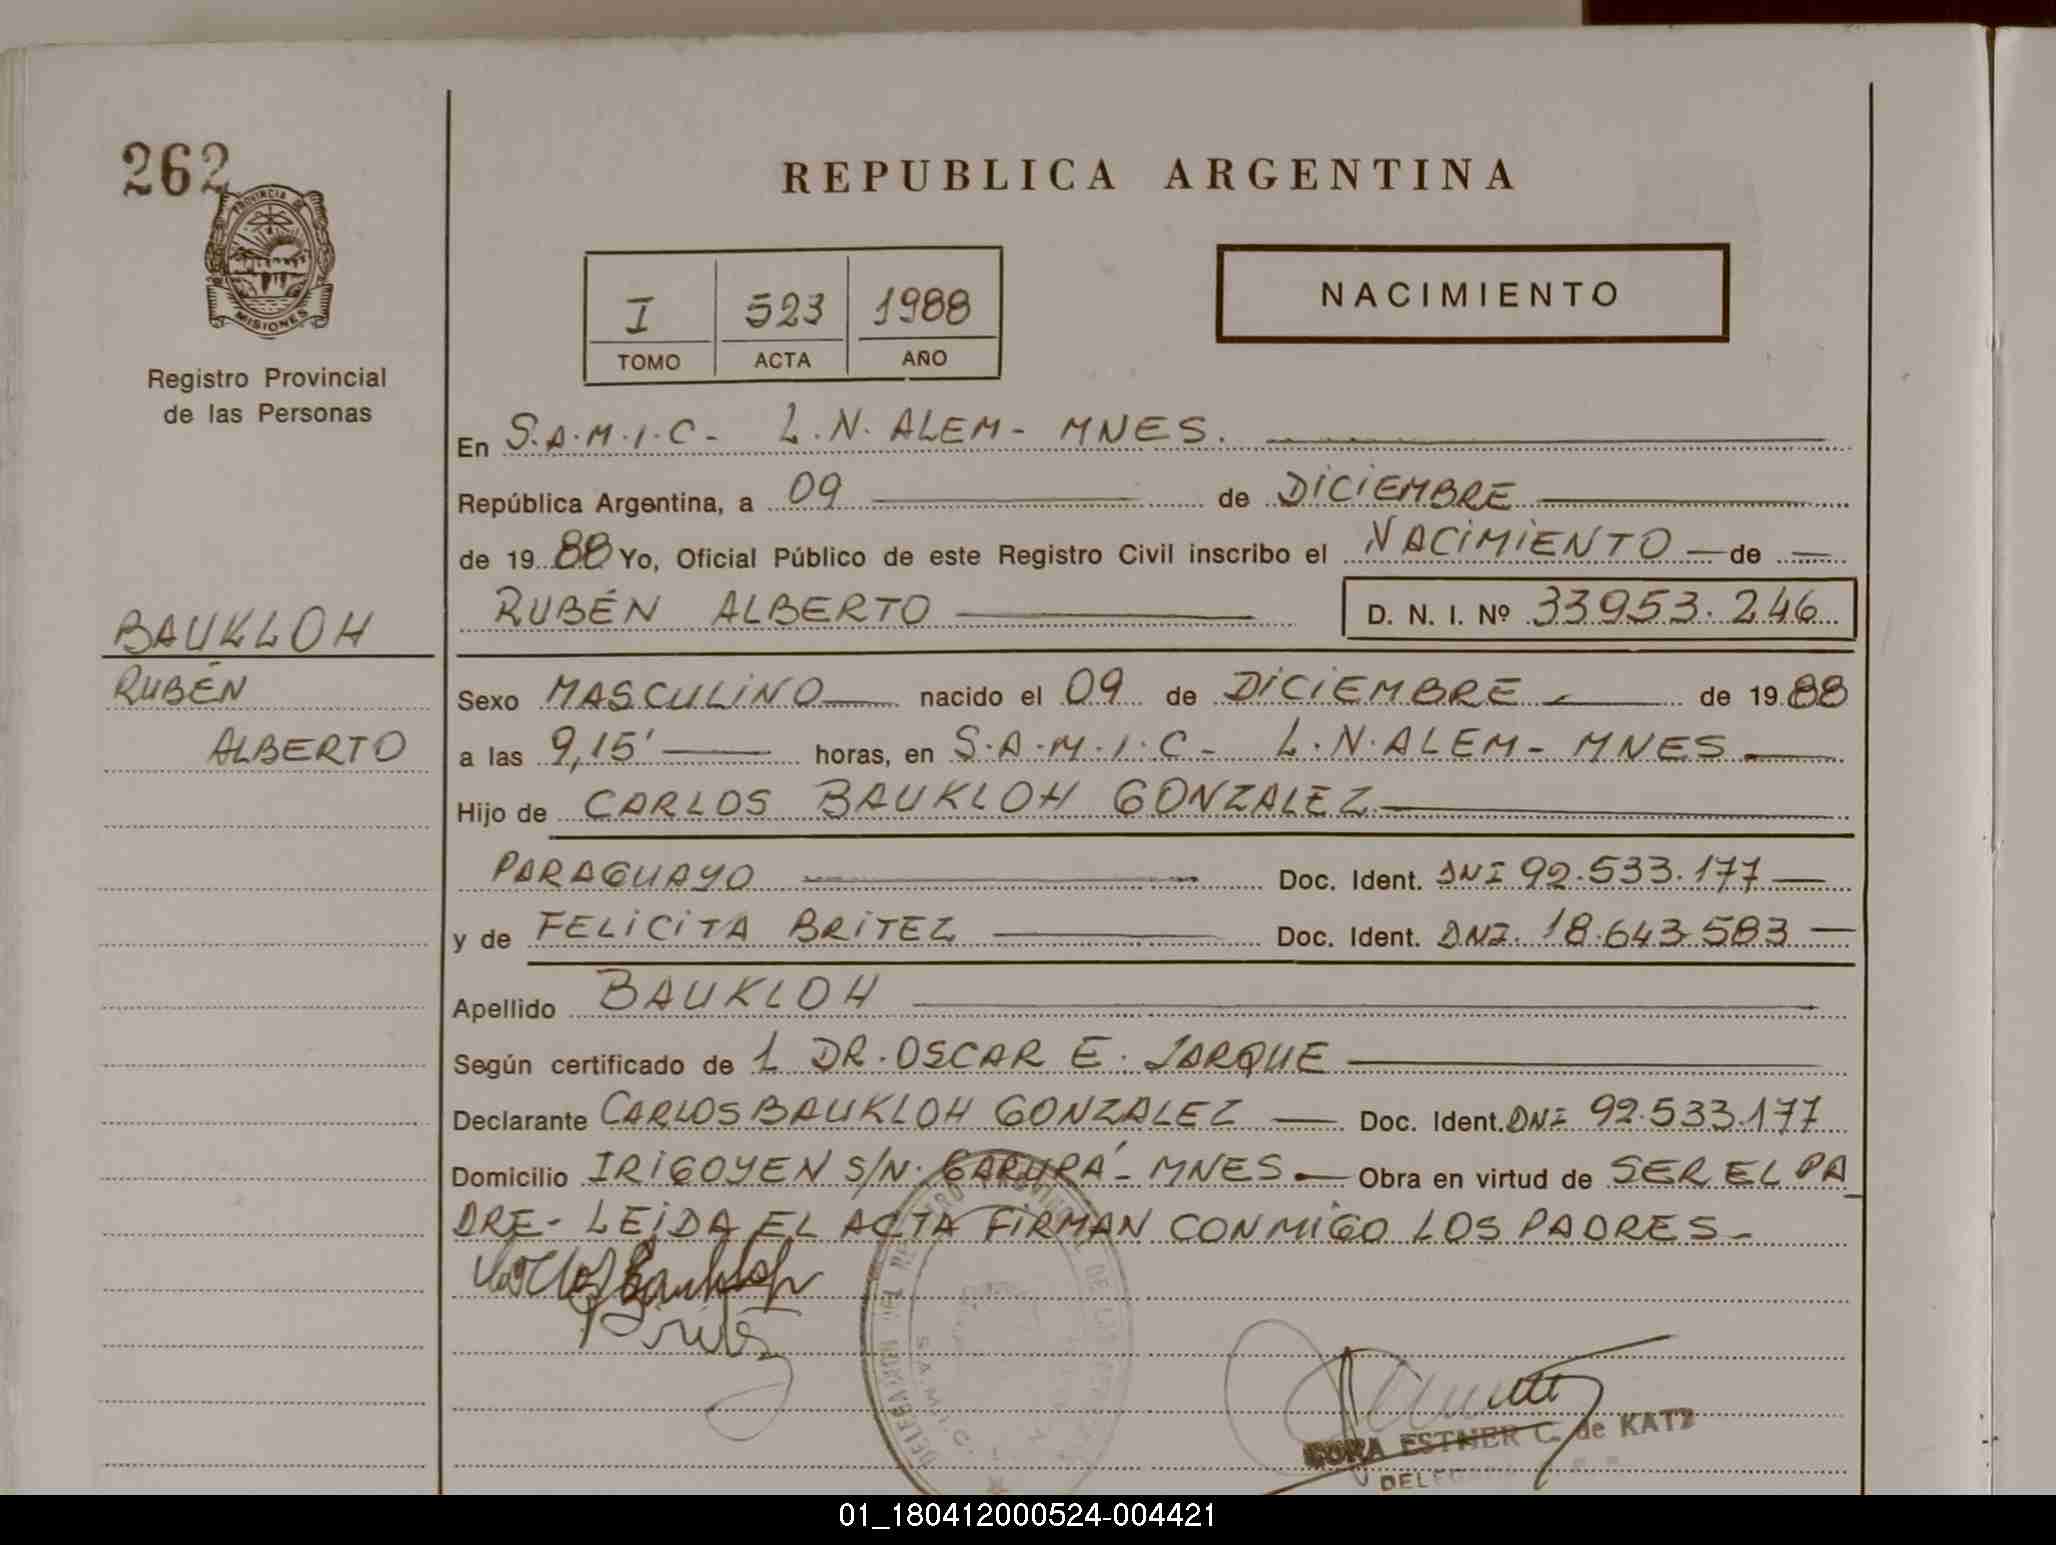 262
PROVINCIA DE
MISIONES
Registro Provincial
de las Personas
REPUBLICA ARGENTINA
I 523 1988
TOMO ACTA AÑO
NACIMIENTO
En S.A.M.I.C- L.N. ALEM- MNES.
República Argentina, a 09 de DICIEMBRE
de 19 88 Yo, Oficial Público de este Registro Civil inscribo el NACIMIENTO de
RUBÉN ALBERTO D. N. I. Nº 33953.246
BAUKLOH
RUBÉN
ALBERTO
Sexo MASCULINO nacido el 09 de DICIEMBRE de 19 88
a las 9,15' horas, en S.A.M.I.C- L.N.ALEM- MNES
Hijo de CARLOS BAUKLOH GONZALEZ
PARAGUAYO Doc. Ident. DNI 92.533.177
y de FELICITA BRITEZ Doc. Ident. DNI. 18.643.583
Apellido BAUKLOH
Según certificado de 1 DR. OSCAR E. JARQUE
Declarante CARLOS BAUKLOH GONZALEZ Doc. Ident. DNI 92.533.177
Domicilio IRIGOYEN S/N. GARUPÁ- MNES Obra en virtud de SER EL PA
DRE- LEIDA EL ACTA FIRMAN CONMIGO LOS PADRES-
Carlos Baukloh
S.A.M.I.C.
C. de KATZ
01_180412000524-004421